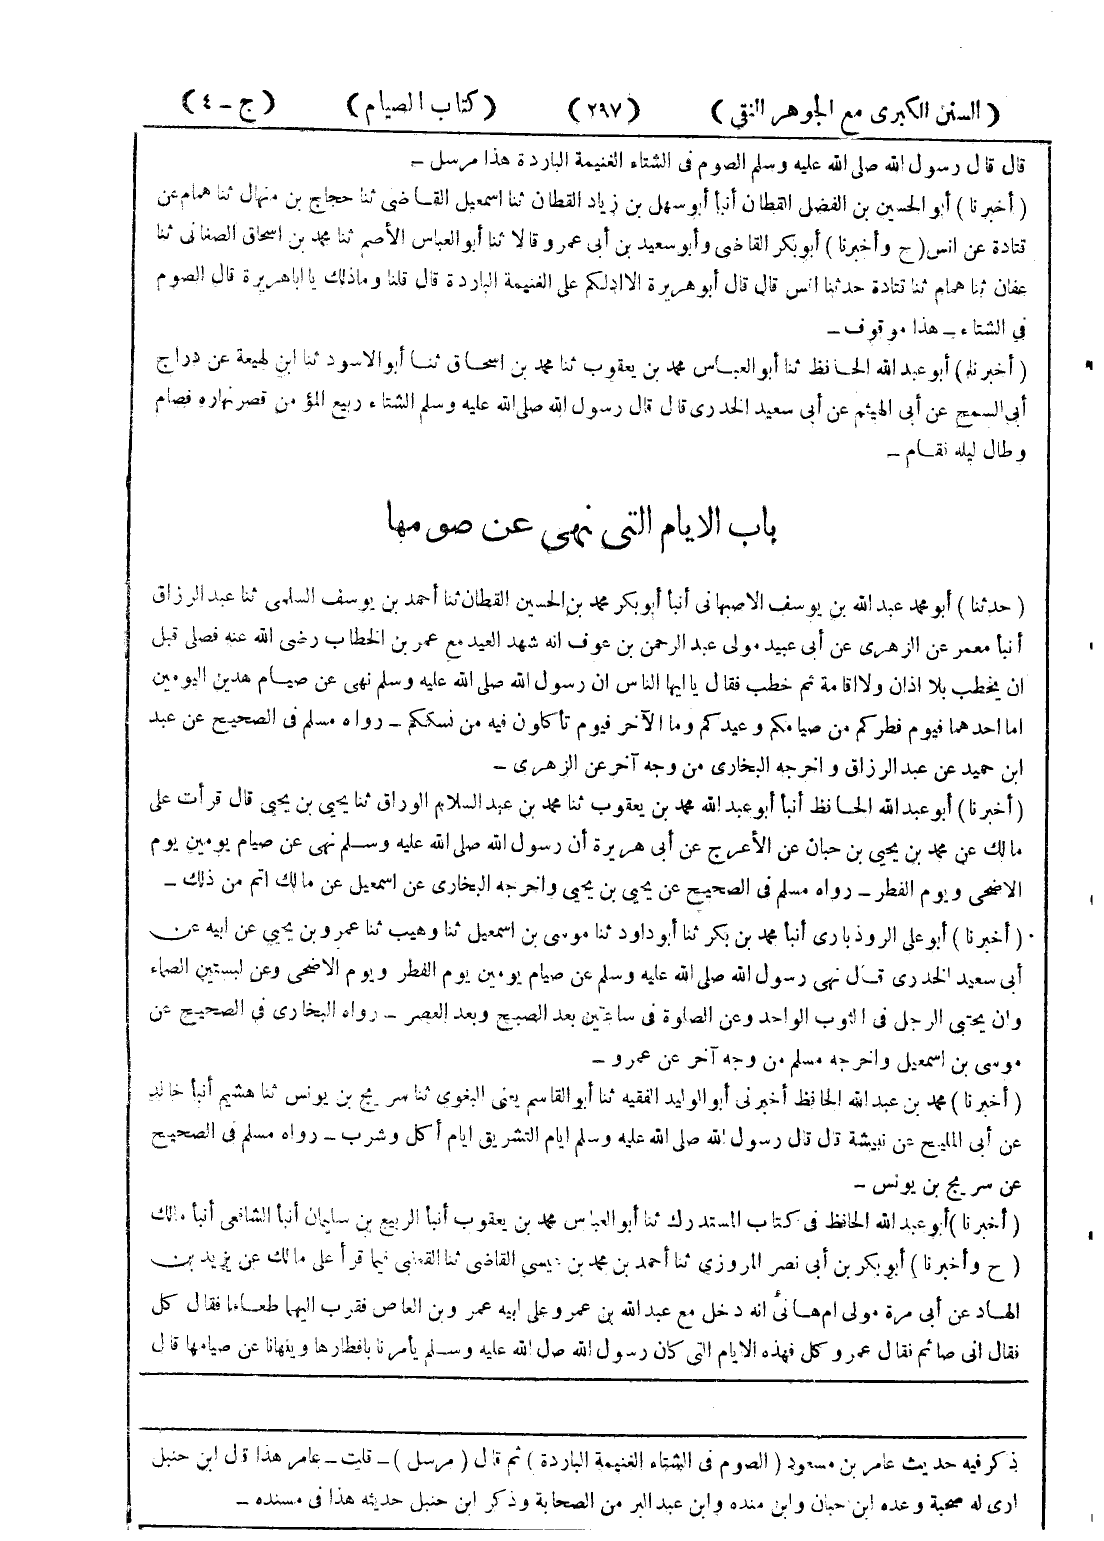 ( السنن الكبرى مع الجوهر النقي ) ( ٢٩٧ ) ( كتاب الصيام ) ( ج - ٤ )
قال قال رسول الله صلى الله عليه وسلم الصوم فى الشتاء الغنيمة الباردة هذا مرسل -
( أخبرنا ) أبو الحسين بن الفضل القطان أنبأ أبوسهل بن زياد القطان ثنا اسمعيل القاضى ثنا حجاج بن منهال ثنا همام عن
قتادة عن انس ( ح وأخبرنا ) أبوبكر القاضى وأبوسعيد بن أبى عمرو قالا ثنا أبوالعباس الأصم ثنا محمد بن اسحاق الصغانى ثنا
عفان ثنا همام ثنا قتادة حدثنا انس قال قال أبوهريرة الاادلكم على الغنيمة الباردة قال قلنا وماذلك ياباهريرة قال الصوم
فى الشتاء - هذا موقوف -
( أخبرنا ) أبوعبدالله الحافظ ثنا أبوالعباس محمد بن يعقوب ثنا محمد بن اسحاق ثنا أبوالاسود ثنا ابن لهيعة عن دراج
أبى السمح عن أبى الهيثم عن أبى سعيد الخدرى قال قال رسول الله صلى الله عليه وسلم الشتاء ربيع المؤمن قصر نهاره فصام
وطال ليله فقام -
باب الايام التى نهى عن صومها
( حدثنا ) أبومحمد عبدالله بن يوسف الاصبهانى أنبأ أبوبكر محمد بن الحسين القطان ثنا أحمد بن يوسف السلمى ثنا عبدالرزاق
أنبأ معمر عن الزهرى عن أبى عبيد مولى عبدالرحمن بن عوف انه شهد العيد مع عمر بن الخطاب رضى الله عنه فصلى قبل
ان يخطب بلا اذان ولااقامة ثم خطب فقال ياايها الناس ان رسول الله صلى الله عليه وسلم نهى عن صيام هذين اليومين
اما احدهما فيوم فطركم من صيامكم وعيدكم وما الآخر فيوم تأكلون فيه من نسككم - رواه مسلم فى الصحيح عن عبد
ابن حميد عن عبدالرزاق واخرجه البخارى من وجه آخر عن الزهرى -
( أخبرنا ) أبوعبدالله الحافظ أنبأ أبوعبدالله محمد بن يعقوب ثنا محمد بن عبدالسلام الوراق ثنا يحيى بن يحيى قال قرأت على
مالك عن محمد بن يحيى بن حبان عن الأعرج عن أبى هريرة أن رسول الله صلى الله عليه وسلم نهى عن صيام يومين يوم
الاضحى ويوم الفطر - رواه مسلم فى الصحيح عن يحيى بن يحيى واخرجه البخارى عن اسمعيل عن مالك اتم من ذلك -
( أخبرنا ) أبوعلى الروذبارى أنبأ محمد بن بكر ثنا أبوداود ثنا موسى بن اسمعيل ثنا وهيب ثنا عمروبن يحيى عن ابيه عن
أبى سعيد الخدرى قال نهى رسول الله صلى الله عليه وسلم عن صيام يومين يوم الفطر ويوم الاضحى وعن لبستين الصماء
وان يحتبى الرجل فى الثوب الواحد وعن الصلوة فى ساعتين بعد الصبح وبعد العصر - رواه البخارى فى الصحيح عن
موسى بن اسمعيل واخرجه مسلم من وجه آخر عن عمرو -
( أخبرنا ) محمد بن عبدالله الحافظ أخبرنى أبوالوليد الفقيه ثنا أبوالقاسم يعنى البغوى ثنا سريج بن يونس ثنا هشيم أنبأ خالد
عن أبى المليح عن نبيشة قال قال رسول الله صلى الله عليه وسلم ايام التشريق ايام أكل وشرب - رواه مسلم فى الصحيح
عن سريج بن يونس -
( أخبرنا ) أبوعبدالله الحافظ فى كتاب المستدرك ثنا أبوالعباس محمد بن يعقوب أنبأ الربيع بن سليمان أنبأ الشافعى أنبأ مالك
( ح وأخبرنا ) أبوبكر بن أبى نصر المروزي ثنا أحمد بن محمد بن عيسي القاضى ثنا القعنبى فيما قرأ على مالك عن يزيد بن
الهاد عن أبى مرة مولى ام هانئ انه دخل مع عبدالله بن عمرو على ابيه عمروبن العاص فقرب اليهما طعاما فقال كل
فقال انى صائم فقال عمرو كل فهذه الايام التى كان رسول الله صلى الله عليه وسلم يأمرنا بافطارها وينهانا عن صيامها قال
ذكر فيه حديث عامر بن مسعود ( الصوم فى الشتاء الغنيمة الباردة ) ثم قال ( مرسل ) - قلت - عامر هذا قال ابن حنبل
ارى له صحبة وعده ابن حبان وابن منده وابن عبدالبر من الصحابة وذكر ابن حنبل حديثه هذا فى مسنده -